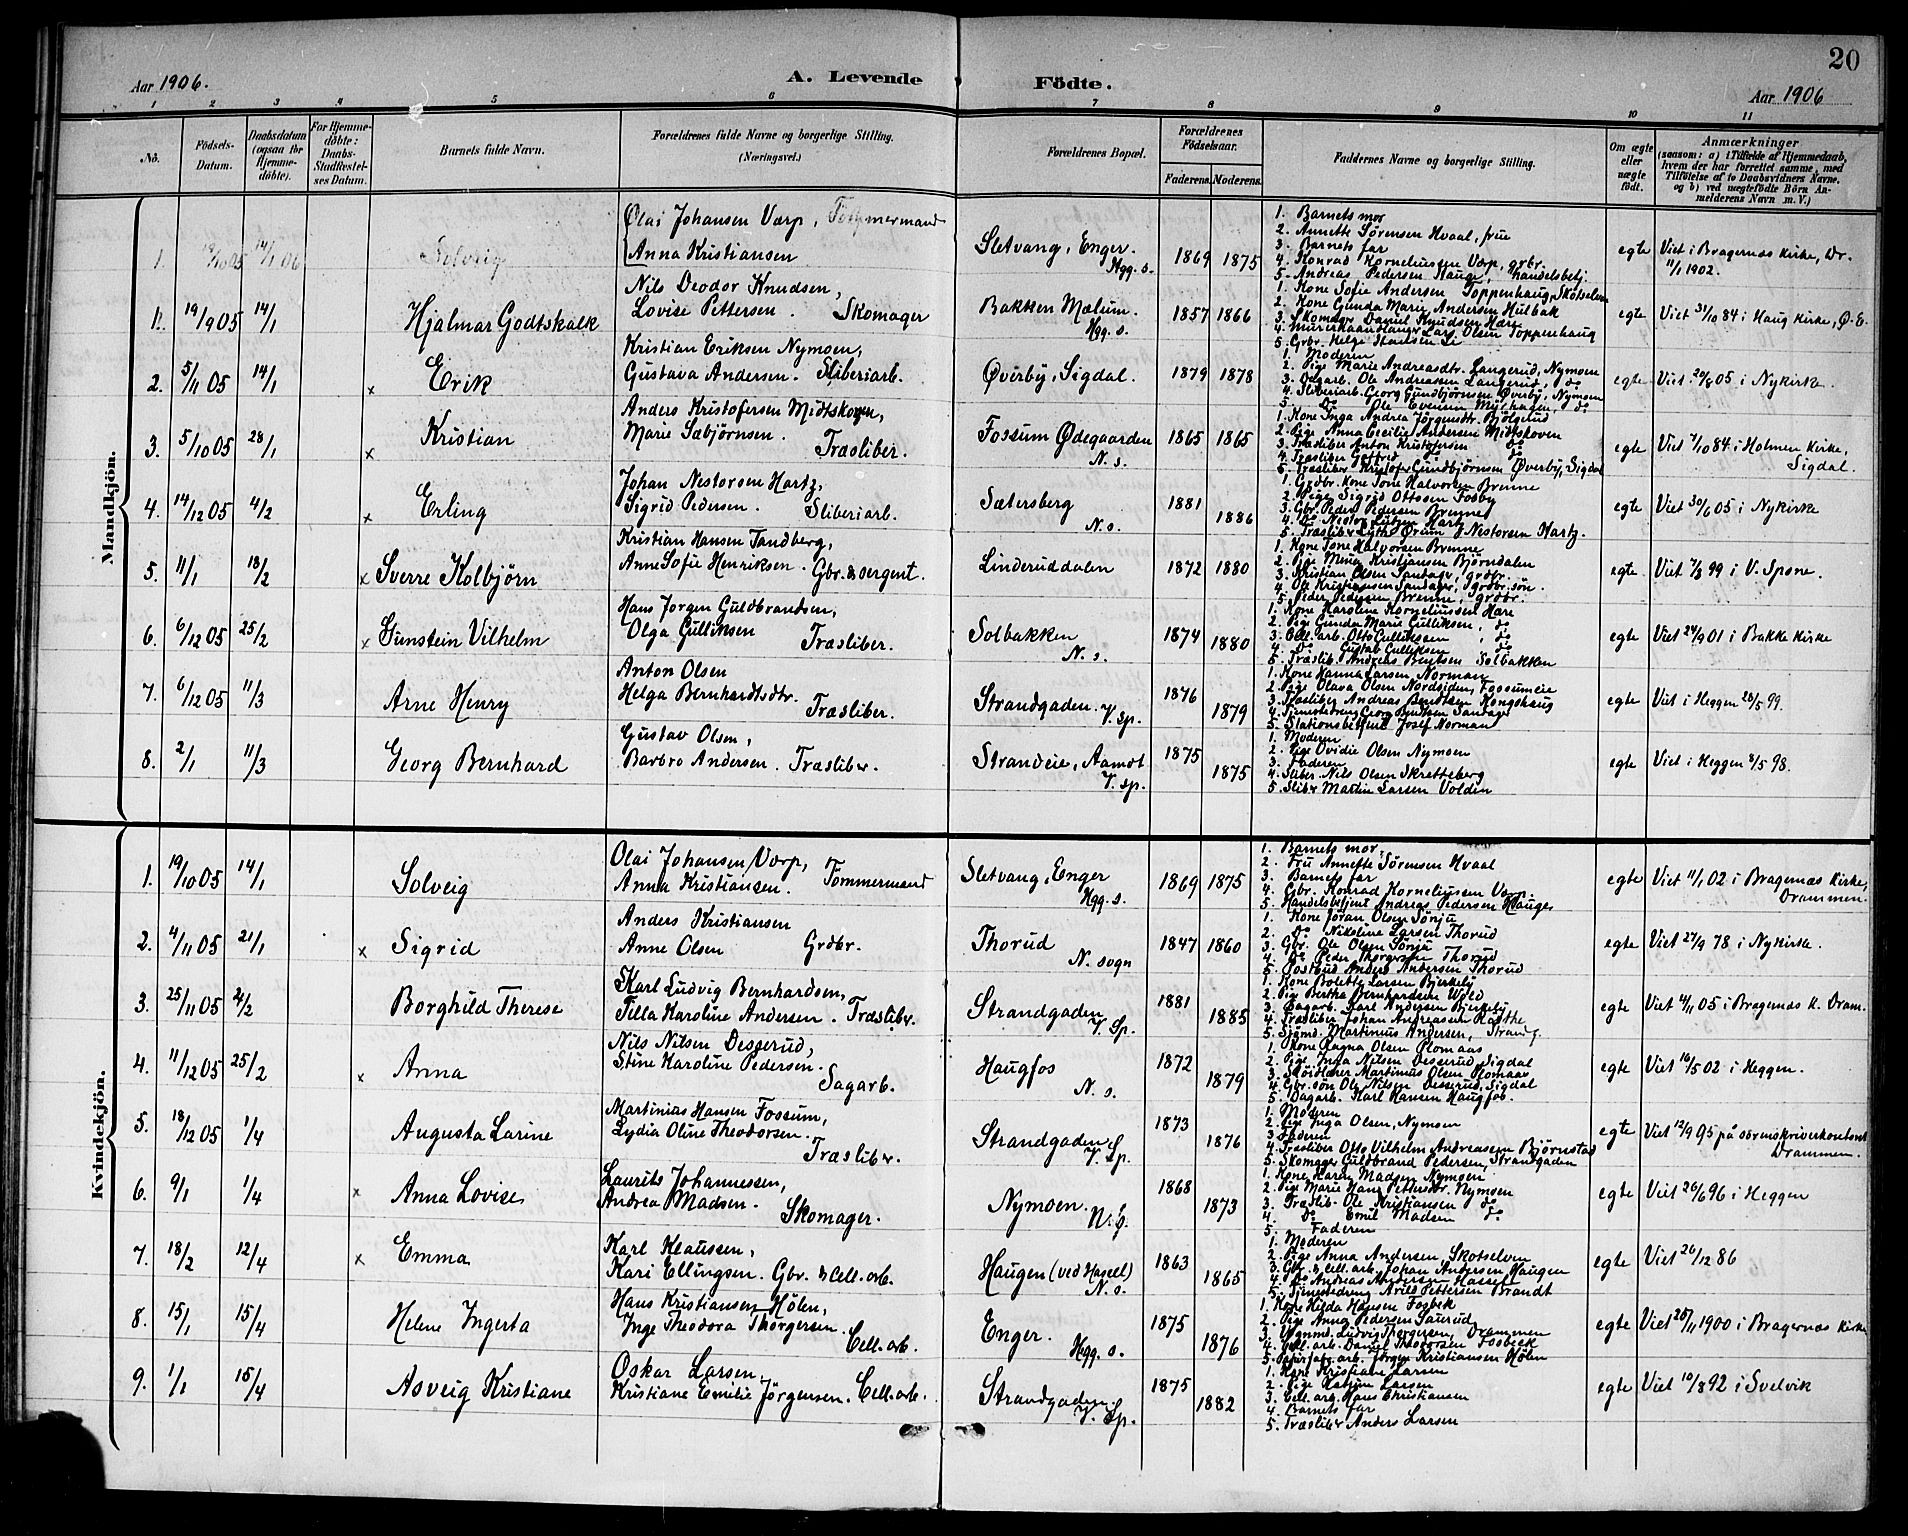 20
Aar 1906.
A. Levende Födte.
Aar 1906
1 2 3 4 5 6 7 8 9 10 11
No.
Födsels-Datum.
Daabsdatum (ogsaa for Hjemme-döbte).
For Hjemme-döbte: Daabs-Stadfæstel-ses Datum.
Barnets fulde Navn.
Forældrenes fulde Navne og borgerlige Stilling.
(Næringsvei.)
Forældrenes Bopæl.
Forældrenes Födselsaar.
Faderens. Moderens.
Faddernes Navne og borgerlige Stilling.
Om ægte eller uægte födt.
Anmærkninger
(saasom: a) i Tilfælde af Hjemmedaab, hvem der har forrettet samme, med Tilföielse af to Daabsvidners Navne, og b) ved uægtefödte Börn An-melderens Navn m. V.)
Mandkjön.
1. 19/10 05 14/1 06 Solveig
Olai Johansen Værp, Tømmermand
Anna Kristiansen
Sletvang, Enger. Hgg. s.
1869 1875
1. Barnets mor
2. Annette Sörensen Hvaal, frue
3. Barnets far
4. Konrad Korneliussen Værp, grbr.
5. Andreas Pedersen Hauge, handelsbetj.
egte Viet i Bragernæs Kirke, Dr. 11/1 1902.
1. 19/9 05 14/1 Hjalmar Godtskalk
Nils Deodor Knudsen,
Lovise Pettersen. Skomager
Bakken Mælum. Hgg. s.
1857 1866
1. Kone Sofie Andersen Toppenhaug, Skotselven
2. Kone Gunda Marie Andersen Hulbak
3. Skomager Daniel Knudsen Hære
4. Lars Olsen Toppenhaug
5. Grbr. Helge Hansen Li
egte Viet 31/10 84 i Haug Kirke, Ø. E.
2. 5/11 05 14/1 x Erik
Kristian Eriksen Nymoen,
Gustava Andersen. Sliberiarb.
Øverby, Sigdal.
1879 1878
1. Moderen
2. Pige Marie Andreasdtr. Langerud, Nymoen
3. Ole Andreassen Langerud, do
4. Sliberiarb. Georg Gundbjörnsen Øverby, Nymoen
5. Do Ole Evensen Myrhagen, do
egte Viet 20/5 05 i Nykirke.
3. 5/10 05 28/1 x Kristian
Anders Kristofersen Midtskogen,
Marie Sæbjørnsen. Træsliber.
Fossum Ødegaarden N. s.
1865 1865
1. Kone Inga Andrea Jörgensdtr. Björgerud
2. Pige Anna Cecilie Andersen Midtskoven
3. Træsliber Anton Kristofersen do
4. Træsliber Gotfred do do
5. Træsliber Kristofer Gundbjörnsen Øverby, Sigdal
egte Viet 7/10 84 i Holmen Kirke, Sigdal.
4. 14/12 05 4/2 x Erling
Johan Nestorsen Hartz,
Sigrid Pedersen. Sliberiarb.
Sætersberg N. s.
1881 1886
1. Grdbr. Kone Tone Halvorsen Brenne
2. Pige Sigrid Ottosen Fosby
3. Gbr. Peder Pedersen Brenne
4. Do Nestor Hartz
5. Træsliber Nestorsen Hartz.
egte Viet 30/6 05 i Nykirke
5. 11/1 18/2 x Sverre Kolbjörn
Kristian Hansen Tandberg,
Anne Sofie Henriksen. Gbr. & sergent.
Linderuddalen
1872 1880
1. Kone Tone Halvorsen Brenne
2. Pige Kristjansen Björndalen
3. Kristian Olsen Sandager, grdbr.
4. Ole Kristiansen Sandager, grdbr. sön.
5. Peder Pedersen Brenne, grdbr.
egte Viet 7/3 99 i V. Spone.
6. 6/12 05 25/2 x Gunstein Vilhelm
Hans Jorgen Guldbrandsen,
Olga Gulliksen Træsliber.
Solbakken N. s.
1874 1880
1. Kone Karoline Korneliussen Hære
2. Pige Gunda Marie Gulliksen, do
3. Cell. arb. Otto Gulliksen, do
4. Do Gustav Gulliksen do
5. Træslib. Andreas Bentsen Solbakken
egte Viet 24/9 01 i Bakke Kirke
7. 6/12 05 11/3 Arne Henry
Anton Olsen
Helga Bernhardtsdtr. Træsliber.
Strandgaden. V. sp.
1876 1879
1. Kone Hanna Larsen, Norman
2. Pige Olava Olsen Nordsiden, Fossumeie
3. Træsliber Andreas Bendtsen Kongshaug
4. Georg Bentsen Sandager
5. Stationsbetjent Josef Norman
egte Viet i Heggen 28/5 99.
8. 2/1 11/3 Georg Bernhard
Gustav Olsen,
Barbro Andersen. Træsliber.
Strandeie, Aamot V. sp.
1875 1875
1. Moderen
2. Pige Ovidie Olsen Nymoen
3. Faderen
4. Sliber Nils Olsen Skretteberg
5. Sliber Martin Larsen Volden
egte Viet i Heggen 8/5 98.
Kvindekjön.
1. 19/10 05 14/1 Solveig
Olai Johansen Værp,
Anna Kristiansen. Tømmermand
Sletvang, Enger Hgg. s.
1869 1875
1. Barnets mor
2. Fru Annette Sörensen Hvaal
3. Barnets far
4. Gbr. Konrad Korneliussen Værp.
5. Handelsbetjent Andreas Pedersen Hauge
egte Viet 11/1 02 i Bragernæs Kirke, Drammen.
2. 4/11 05 21/1 x Sigrid
Anders Kristiansen
Anne Olsen Grdbr.
Thorud N. sogn
1847 1860
1. Kone Jöran Olsen Sönju
2. Do Nikoline Larsen Thorud
3. Gbr. Ole Olsen Sönju
4. Do Peder Thorgersen Thorud
5. Postbud Anders Andersen Thorud
egte Viet 27/9 78 i Nykirke.
3. 25/11 05 2/2 Borghild Therese
Karl Ludvig Bernhardsen,
Tilla Karoline Andersen. Træsliber.
Strandgaden V. Sp.
1881 1885
1. Kone Bolette Larsen Bjerkeby
2. Pige Bertha Bernhardsen Wold
3. Karl Andersen Bjerkeby
4. Træsliber Johan Andreassen
5. Sjömd. Martinus Andersen, Strandg.
egte Viet 4/11 05 i Bragenæs K. Dram.
4. 11/12 05 25/2 x Anna
Nils Nilsen Desserud,
Stine Karoline Pedersen. Sagarb.
Haugfos N. s.
1872 1879
1. Kone Ragna Olsen Plomaas
2. Pige Inga Nilsen Desserud, Sigdal
3. Martinus Olsen Plomaas
4. Gbr. sön Ole Nilsen Desserud, Sigdal
5. Dagarb. Karl Hansen Haugfos.
egte Viet 16/5 02 i Heggen.
5. 18/12 05 1/4 Augusta Larine
Martinius Hansen Fossum,
Lydia Oline Theodorsen. Træsliber.
Strandgaden V. Sp.
1873 1876
1. Moderen
2. Pige Inga Olsen, Nymoen
3. Faderen
4. Træsliber Otto Vilhelm Andreassen Björnstad
5. Skomager Guldbrand Pedersen, Strandgaden
egte Viet 12/9 95 på sorenskriverkontoret Drammen.
6. 9/1 1/4 x Anna Lovise
Laurits Johannessen,
Andrea Madsen. Skomager.
Nymoen. N. s.
1868 1873
1. Kone Karen Madsen Nymoen
2. Pige Marie Hans Pettersdtr. Nymoen
3. Træslib. Ole Kristiansen do
4. Do Emil Madsen do
5. Faderen
egte Viet 26/6 96 i Heggen
7. 18/2 12/4 x Emma
Karl Klaussen,
Kari Ellingsen. Gbr. & Cell. arb.
Haugen (ved Hasell) N. s.
1863 1865
1. Moderen
2. Pige Anna Andersen Skotselven
3. Gbr. & Cell. arb. Johan Andersen Haugen
4. Do Andreas Andersen Hassel
5. Tjenestedreng Arild Pettersen Brandt
egte Viet 26/12 86
8. 15/1 15/4 Helene Ingerta
Hans Kristiansen Hölen,
Inge Theodora Thorgersen. Cell. arb.
Enger. Hgg. s.
1875 1876
1. Kone Hilda Hansen Fosbek
2. Pige Anna Pedersen Saurud
3. Ludvig Thorgersen, Drammen
4. Cell. arb. Daniel Theodorsen Fosbeck
5. Papirfabr. arb. Jörgen Kristiansen Hölen
egte Viet 25/11 1900 i Bragernæs Kirke
9. 1/1 15/4 Asveig Kristiane
Oskar Larsen,
Kristiane Emilie Jörgensen. Cell. arb.
Strandgaden V. Sp.
1875 1882
1. Kone Kristiane Larsen
2. Pige Larsen
3. Cell. arb. Hans Christiansen
4. Barnets far
5. Træsliber Anders Larsen
egte Viet 10/8 92 i Svelvik